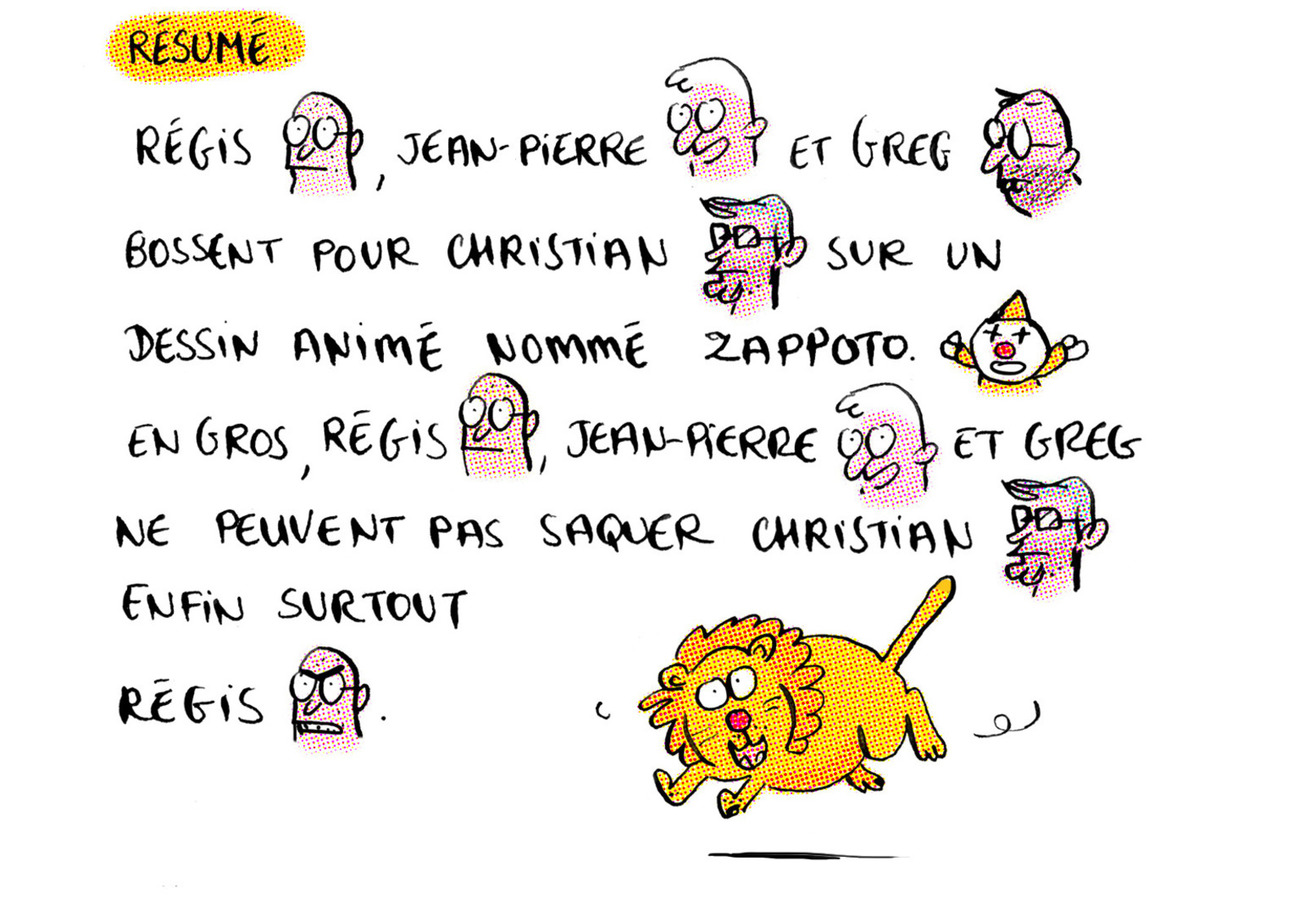 RÉSUMÉ:
RÉGIS , JEAN-PIERRE ET GREG
BOSSENT POUR CHRISTIAN SUR UN
DESSIN ANIMÉ NOMMÉ ZAPPOTO.
EN GROS, RÉGIS , JEAN-PIERRE ET GREG
NE PEUVENT PAS SAQUER CHRISTIAN
ENFIN SURTOUT
RÉGIS .